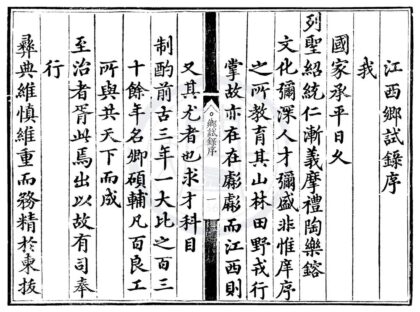 江西鄉試錄序
我
國家承平日久
列聖紹統仁漸義摩禮陶樂鎔
文化彌深人才彌盛非惟庠序
之所教育其山林田野戎行
掌故亦在在彪彪而江西則
鄉試錄序 一
又其尤者也求才科目
制酌前古三年一大比之百三
十餘年名卿碩輔凡百良工
所與共天下而成
至治者胥此焉出以故有司奉
行
彝典維慎維重而務精於柬拔